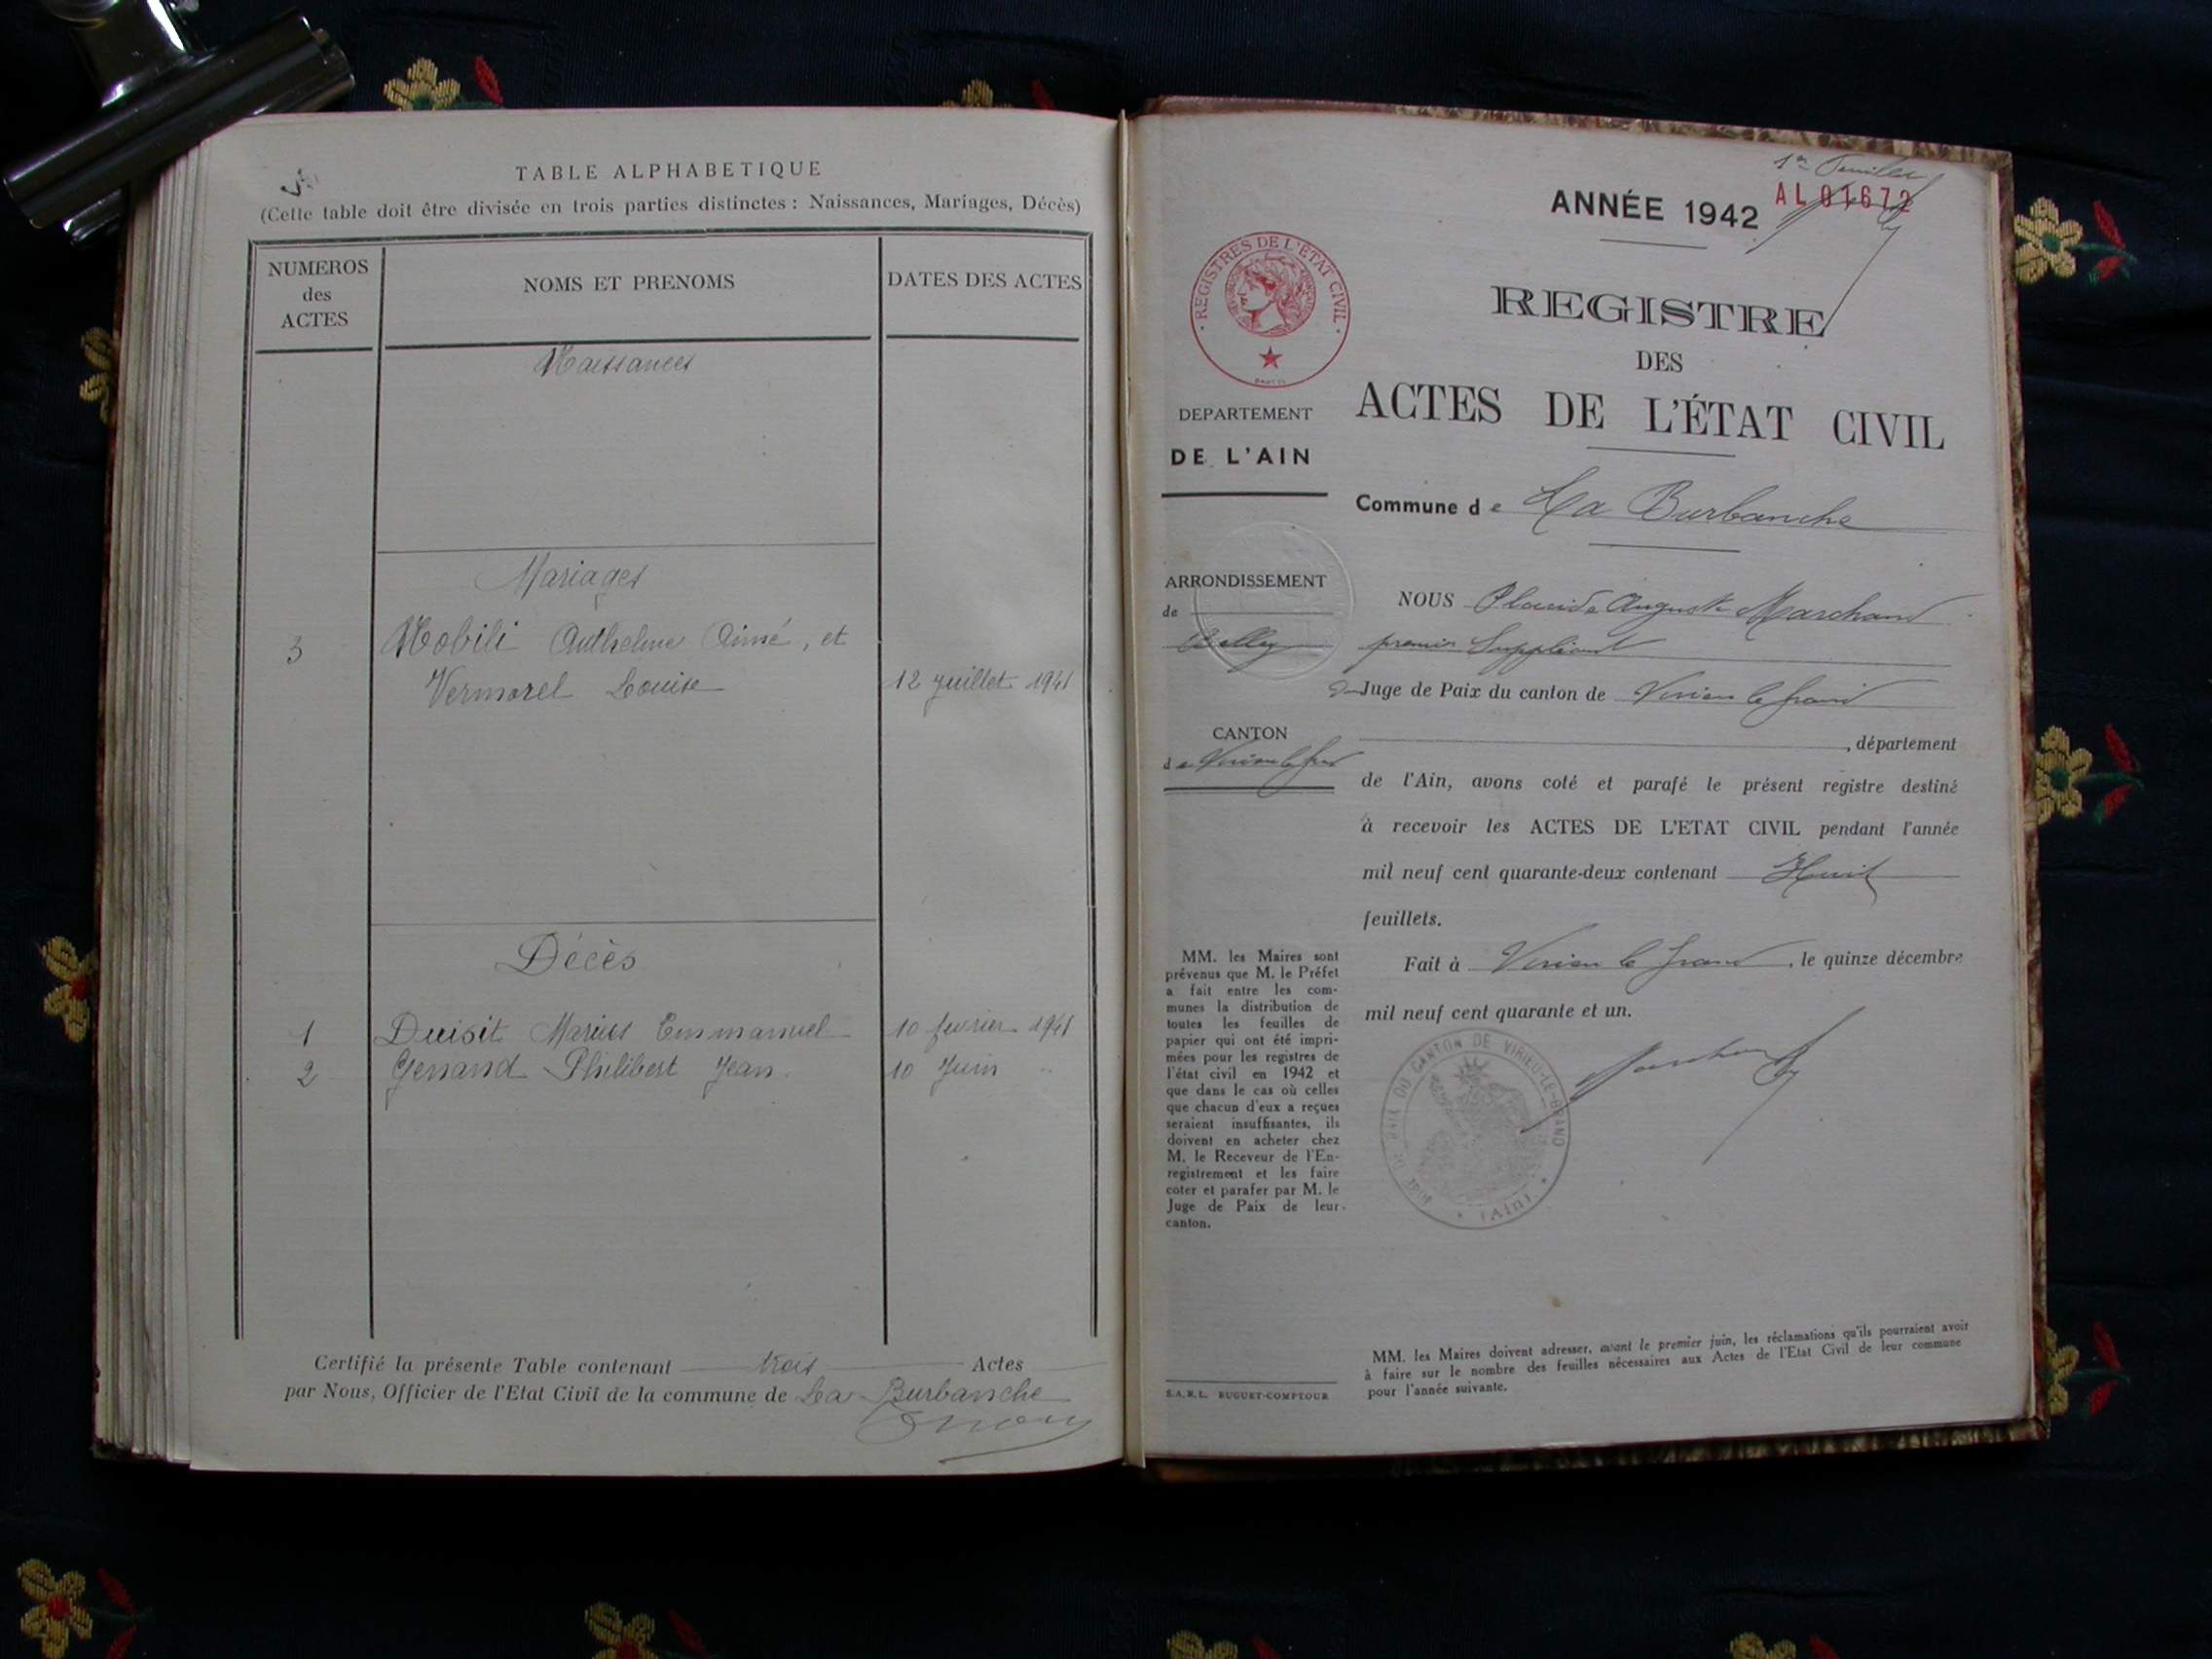 TABLE ALPHABETIQUE
(Cette table doit être divisée en trois parties distinctes : Naissances, Mariages, Décès)
NUMEROS
des
ACTES
NOMS ET PRENOMS
DATES DES ACTES
Naissances
Mariages
3 Nobili Anthelme Aimé, et
Vermorel Louise 12 juillet 1941
Décès
1 Duisit Marius Emmanuel 10 fevrier 1941
2 Genand Philibert Jean 10 Juin "
Certifié la présente Table contenant trois Actes
par Nous, Officier de l'Etat Civil de la commune de La Burbanche
1er Feuillet
ANNÉE 1942
AL 01672
REGISTRES DE L'ETAT CIVIL
REGISTRE
DES
ACTES DE L'ÉTAT CIVIL
DEPARTEMENT
DE L'AIN
Commune de La Burbanche
ARRONDISSEMENT
de
Belley
CANTON
de Virieu le grand
NOUS Placide Auguste Marchand
premier Suppléant
du Juge de Paix du canton de Virieu le grand
, département
de l'Ain, avons coté et parafé le présent registre destiné
à recevoir les ACTES DE L'ETAT CIVIL pendant l'année
mil neuf cent quarante-deux contenant Huit
feuillets.
Fait à Virieu le grand, le quinze décembre
mil neuf cent quarante et un.
Marchand
DU CANTON DE VIRIEU-LE-GRAND
(Ain)
MM. les Maires sont
prévenus que M. le Préfet
a fait entre les com-
munes la distribution de
toutes les feuilles de
papier qui ont été impri-
mées pour les registres de
l'état civil en 1942 et
que dans le cas où celles
que chacun d'eux a reçues
seraient insuffisantes, ils
doivent en acheter chez
M. le Receveur de l'En-
registrement et les faire
coter et parafer par M. le
Juge de Paix de leur
canton.
S.A.R.L. BUGUET-COMPTOUR
MM. les Maires doivent adresser, avant le premier juin, les réclamations qu'ils pourraient avoir
à faire sur le nombre des feuilles nécessaires aux Actes de l'Etat Civil de leur commune
pour l'année suivante.